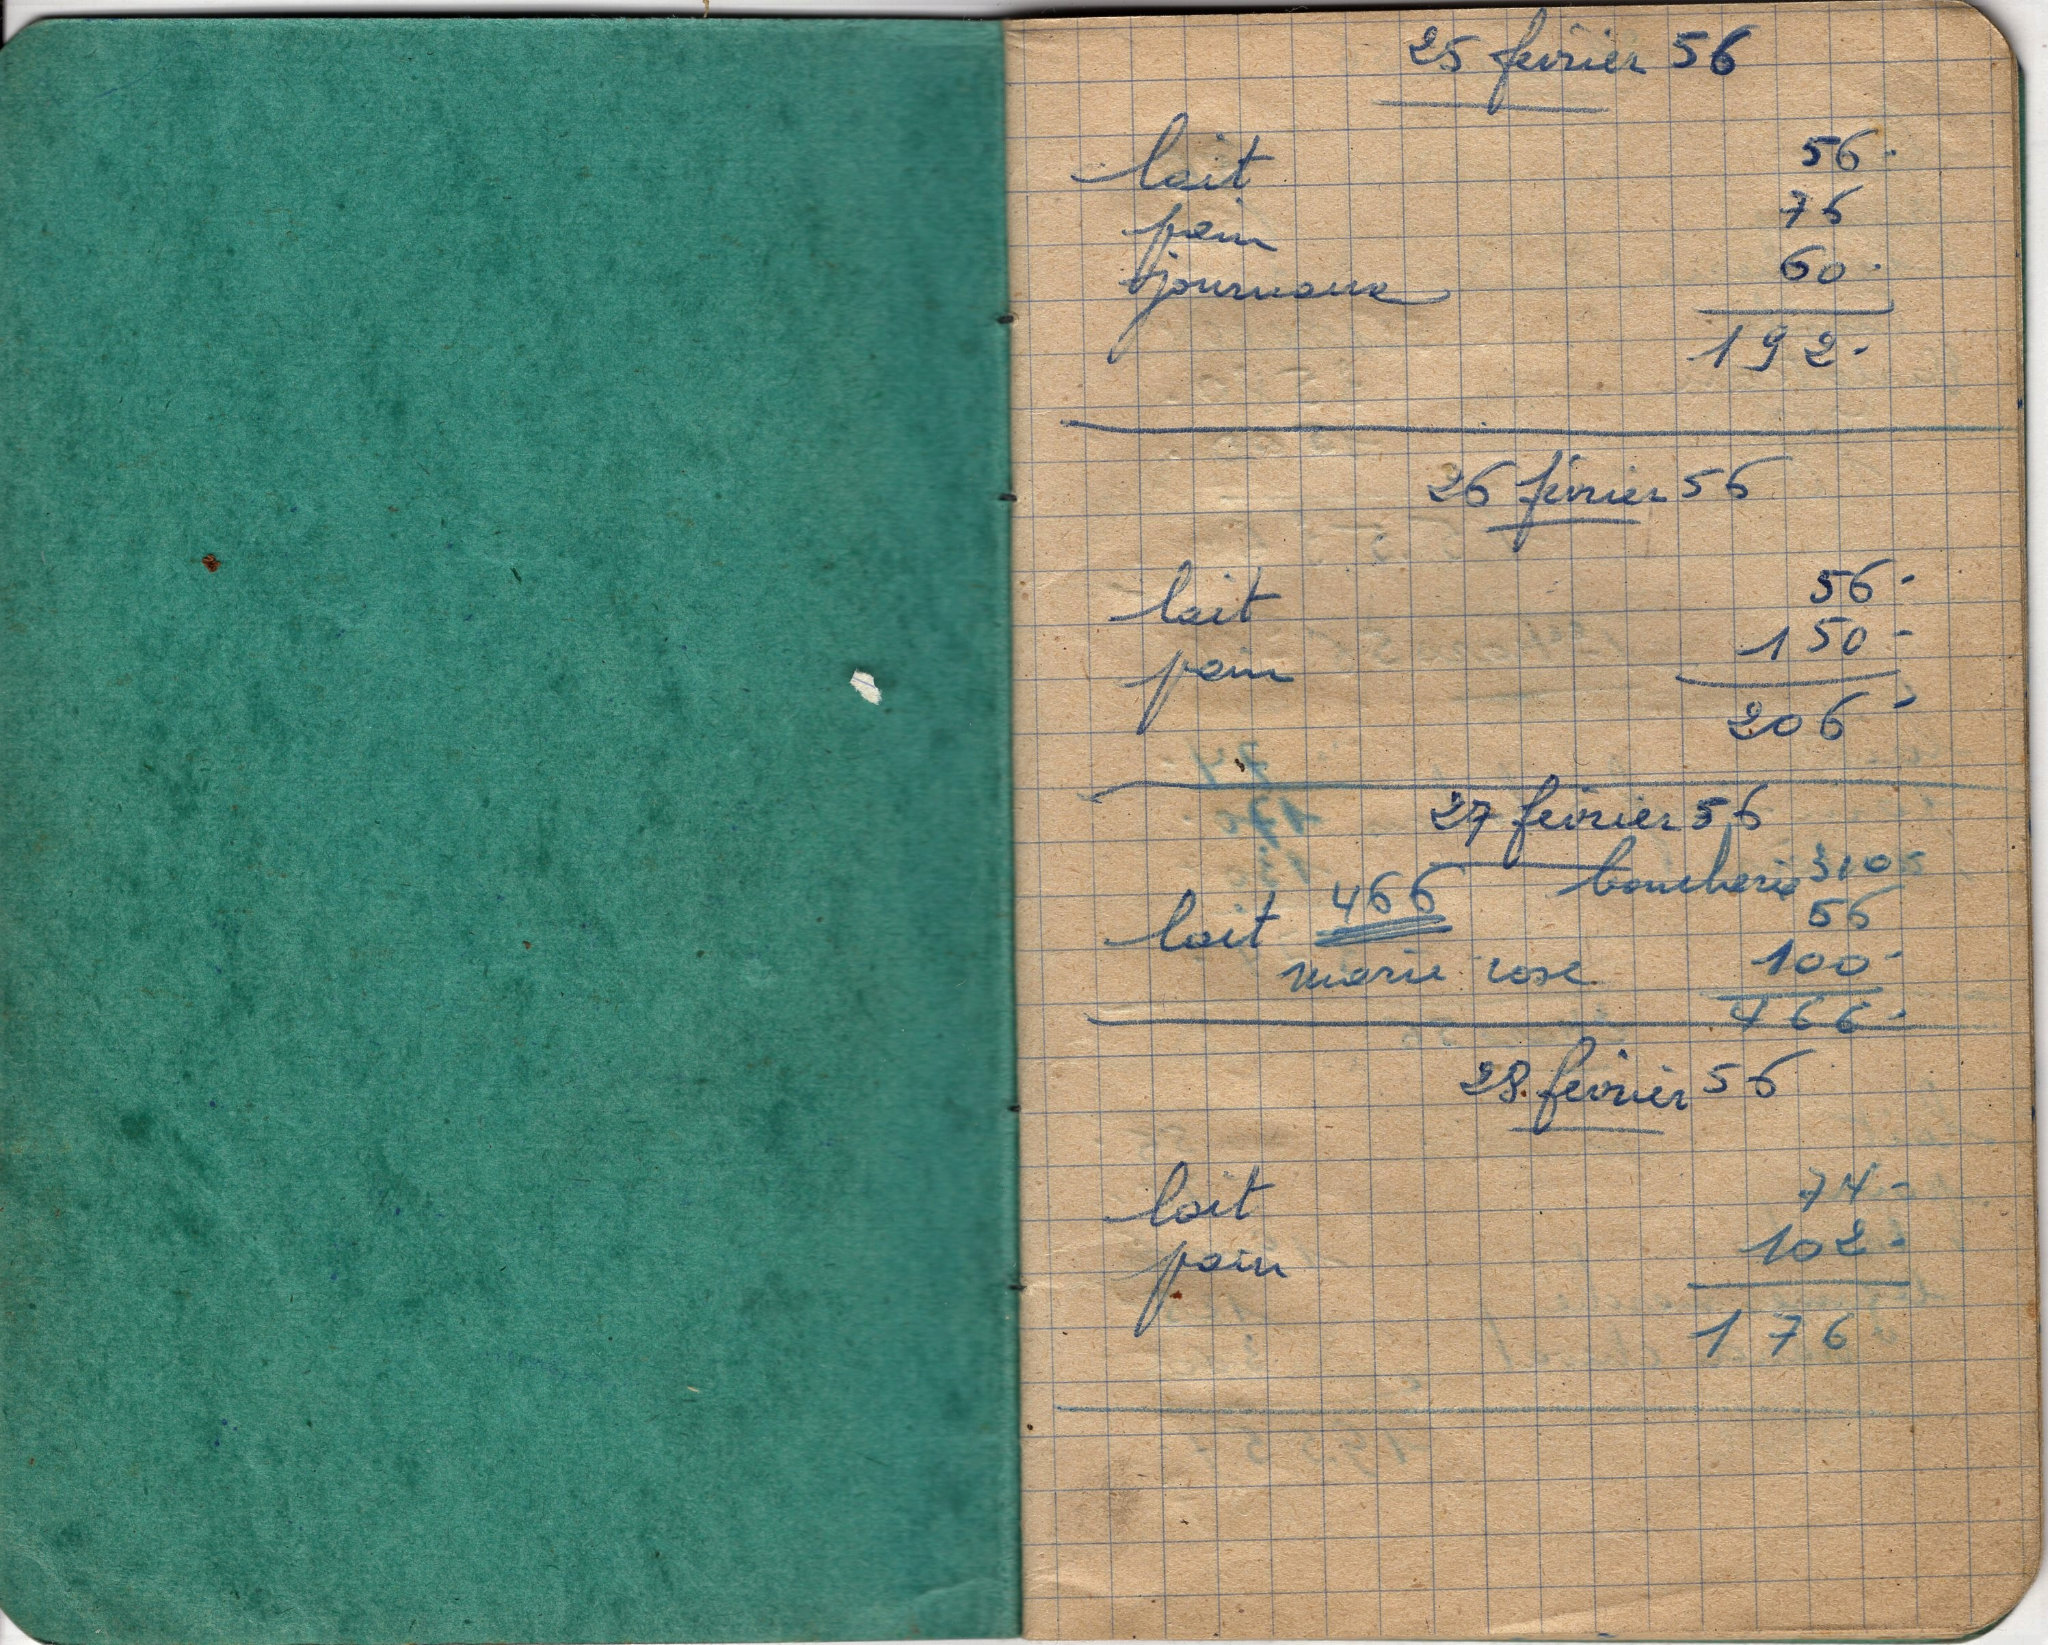 25 fevrier 56
lait 56-
pain 76
journaux 60-
192-
26 fevrier 56
lait 56-
pain 150-
206-
27 fevrier 56
boucherie 310-
lait 466 56
marie rose 100-
466-
28 fevrier 56
lait 74-
pain 102-
176